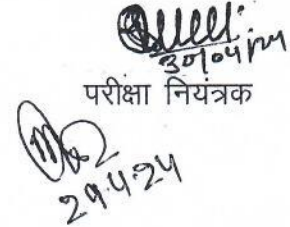 30/04/24
परीक्षा नियंत्रक
29.4.24